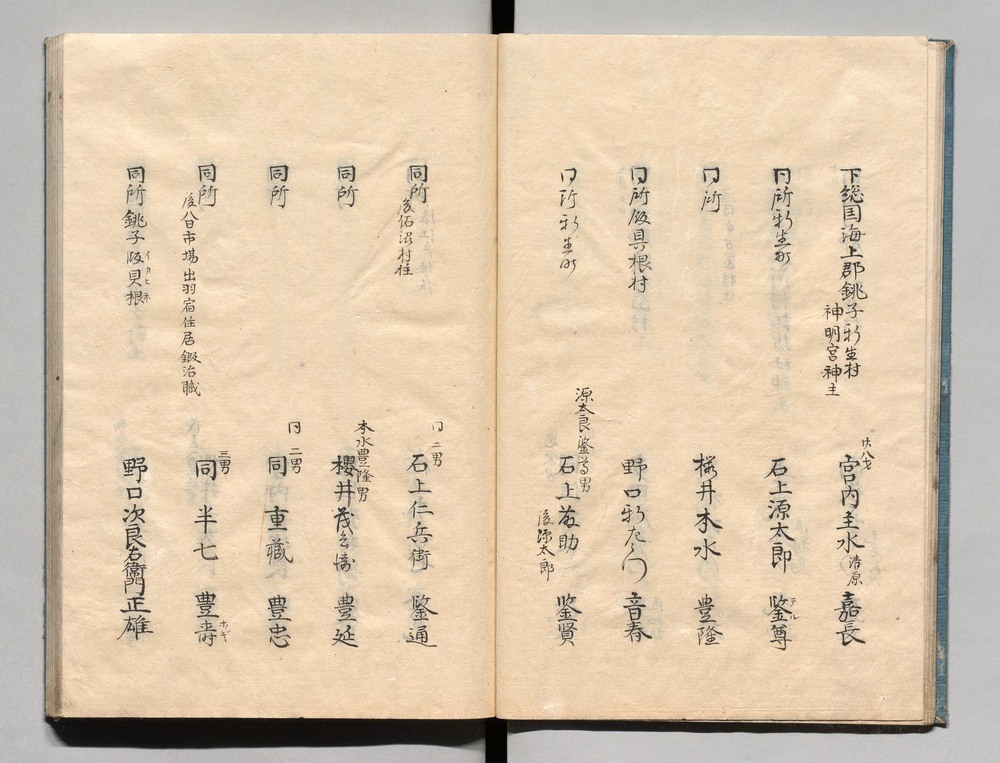 下総国海上郡銚子新生村
神明宮神主
廿八才
宮内主水 清原 嘉長
同所新生町
石上源太郎 鑒尊
テル
同所
桜井本水 豊隆
同所飯貝根村
野口新左衛門 音春
同所新生町
源太良鑒尊男
石上藤助 鑒賢
後源太郎
同所
後佰沼村住
同二男
石上仁兵衛 鑒通
同所
本水豊隆男
櫻井茂兵衛 豊延
同所
同二男
同 重藏 豊忠
同所
後八日市場出羽宿住居鍛冶職
三男
同 半七 豊壽
ホギ
同所銚子飯貝根
イカヒネ
野口次良右衛門正雄